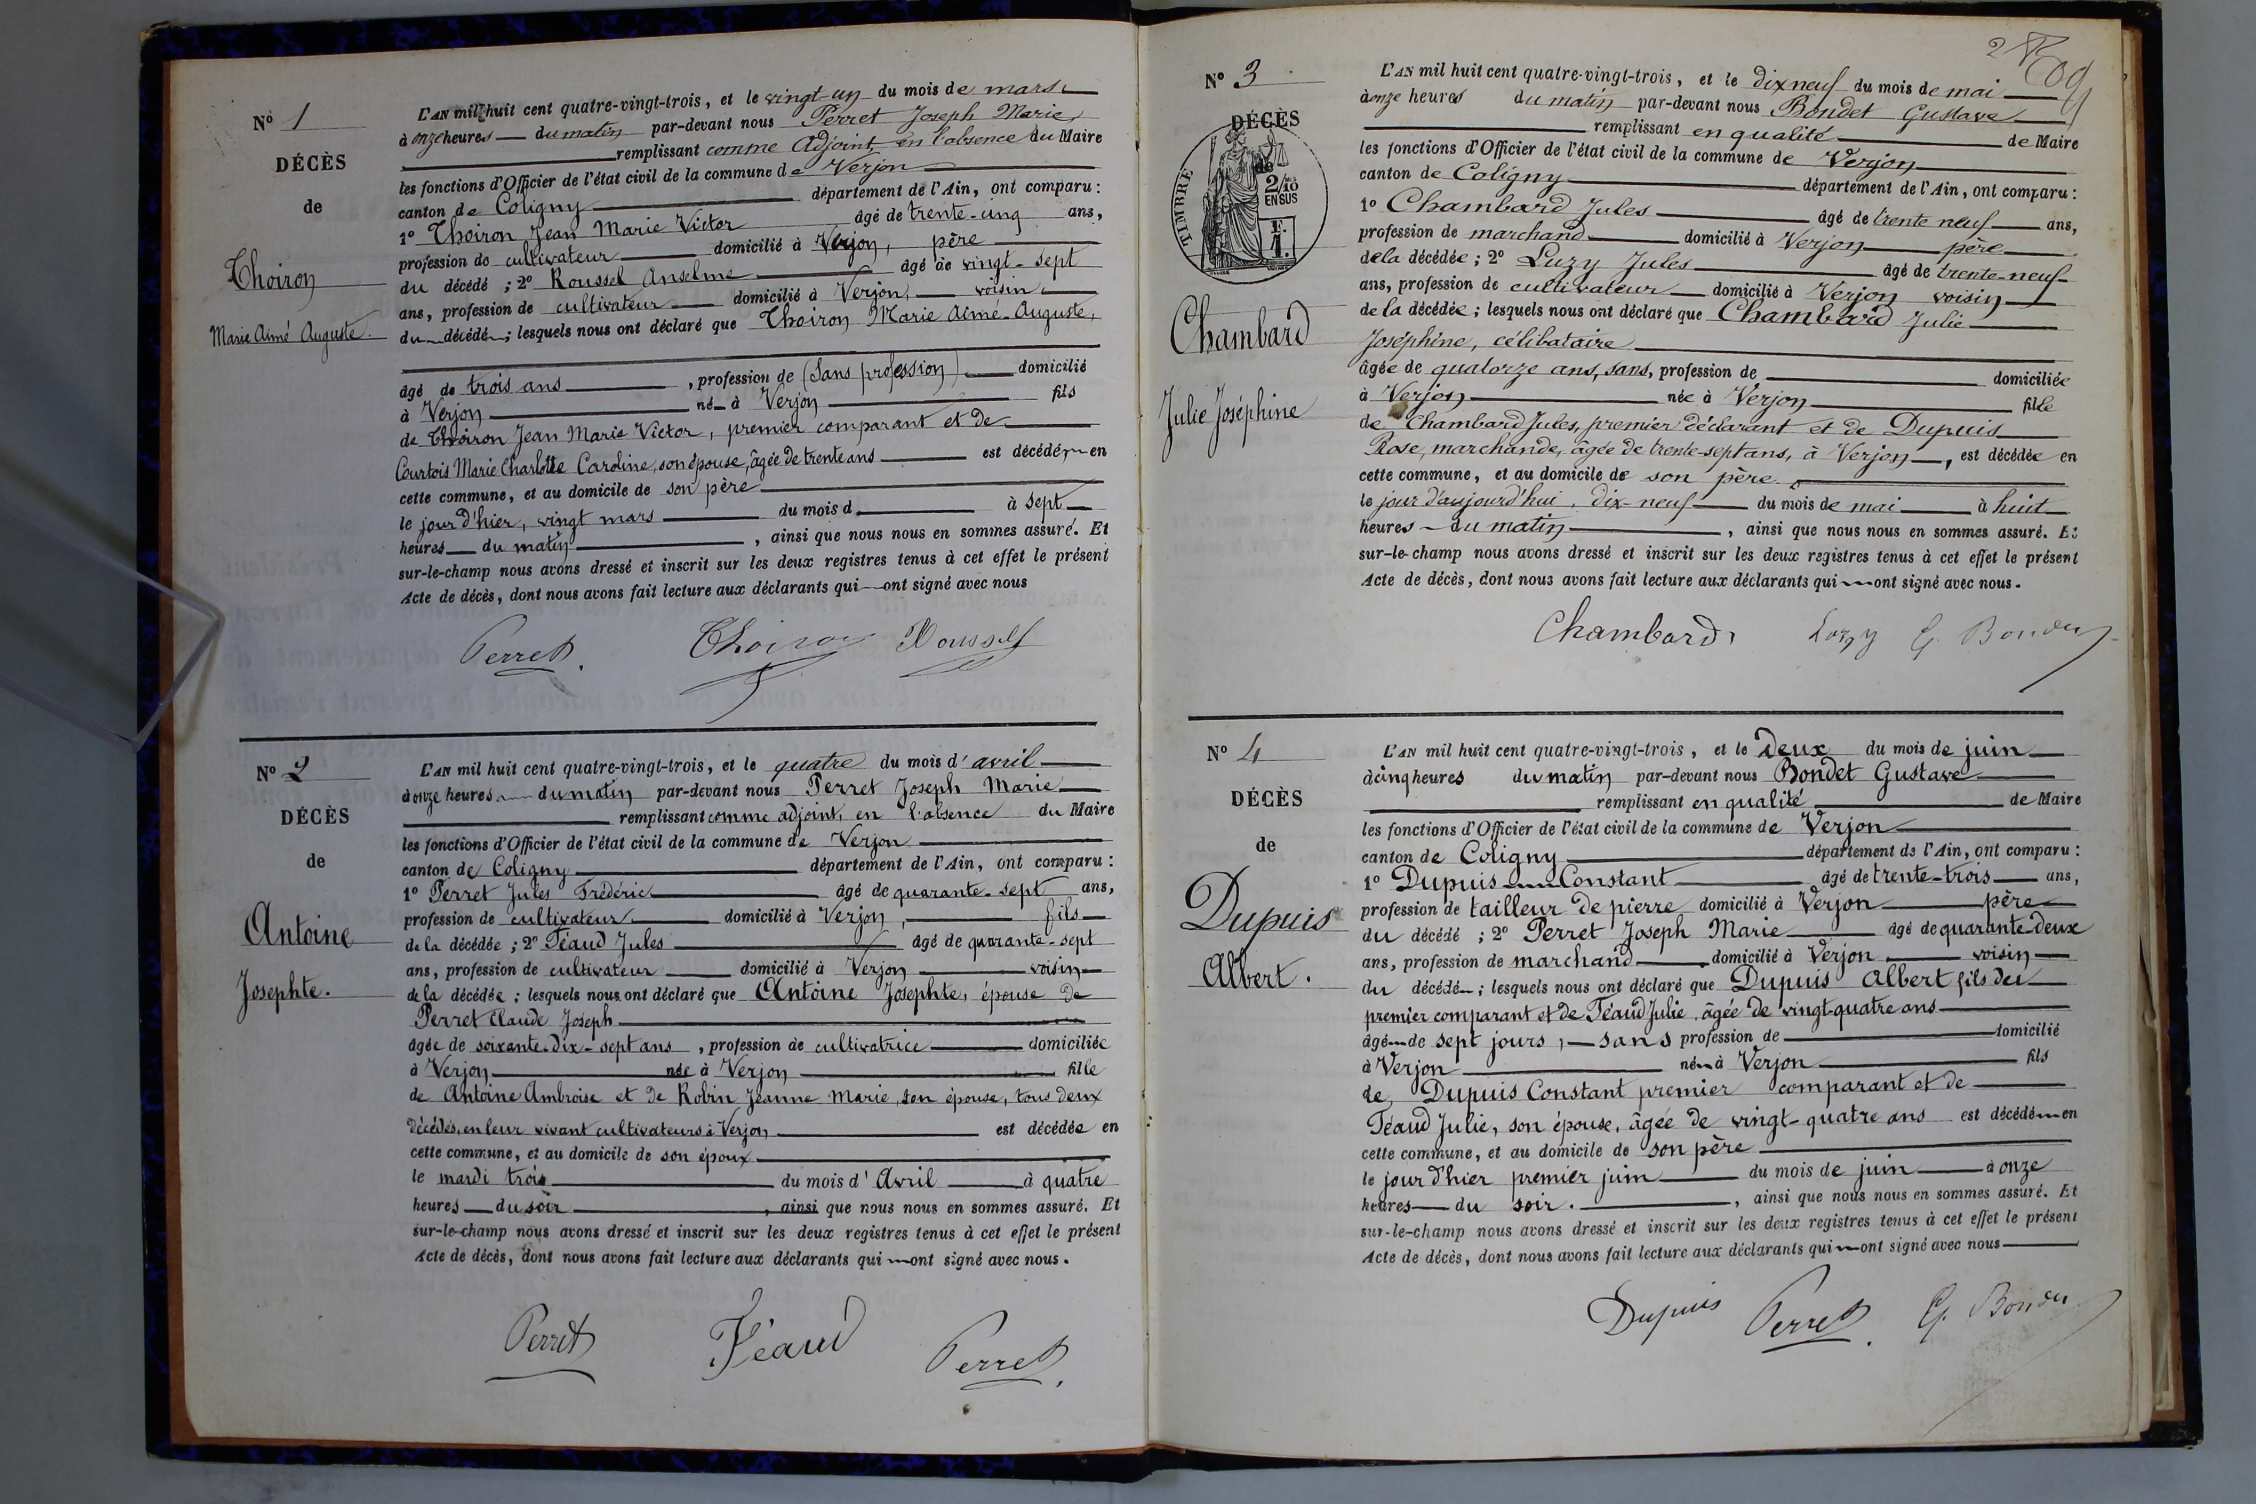 Nº 1
DÉCÈS
de
Thoiron
Marie Aimé Auguste.
L'AN mil huit cent quatre-vingt-trois, et le vingt-un du mois de mars
à onze heures du matin par-devant nous Perret Joseph Marie,
remplissant comme Adjoint en l'absence du Maire
les fonctions d'Officier de l'état civil de la commune de Verjon
canton de Coligny département de l'Ain, ont comparu :
1º Thoiron Jean Marie Victor âgé de trente-cinq ans,
profession de cultivateur domicilié à Verjon, père
du décédé ; 2º Roussel Anselme âgé de vingt-sept
ans, profession de cultivateur domicilié à Verjon, voisin
du décédé ; lesquels nous ont déclaré que Thoiron Marie Aimé-Auguste,
âgé de trois ans, profession de (Sans profession) domicilié
à Verjon né à Verjon fils
de Thoiron Jean Marie Victor, premier comparant et de
Courtois Marie Charlotte Caroline, son épouse, âgée de trente ans est décédé en
cette commune, et au domicile de son père
le jour d'hier, vingt mars du mois d à sept
heures du matin, ainsi que nous nous en sommes assuré. Et
sur-le-champ nous avons dressé et inscrit sur les deux registres tenus à cet effet le présent
Acte de décès, dont nous avons fait lecture aux déclarants qui ont signé avec nous
Perret. Thoiron Roussel
Nº 2
DÉCÈS
de
Antoine
Josephte.
L'AN mil huit cent quatre-vingt-trois, et le quatre du mois d'avril
à onze heures du matin par-devant nous Perret Joseph Marie
remplissant comme adjoint, en l'absence du Maire
les fonctions d'Officier de l'état civil de la commune de Verjon
canton de Coligny département de l'Ain, ont comparu :
1º Perret Jules Frédéric âgé de quarante-sept ans,
profession de cultivateur domicilié à Verjon, fils
de la décédée ; 2º Féaud Jules âgé de quarante-sept
ans, profession de cultivateur domicilié à Verjon voisin
de la décédée ; lesquels nous ont déclaré que Antoine Josephte, épouse de
Perret Claude Joseph
âgée de soixante-dix-sept ans, profession de cultivatrice domiciliée
à Verjon née à Verjon fille
de Antoine Ambroise et de Robin Jeanne Marie, son épouse, tous deux
décédés, en leur vivant cultivateurs à Verjon est décédée en
cette commune, et au domicile de son époux
le mardi trois du mois d'Avril à quatre
heures du soir, ainsi que nous nous en sommes assuré. Et
sur-le-champ nous avons dressé et inscrit sur les deux registres tenus à cet effet le présent
Acte de décès, dont nous avons fait lecture aux déclarants qui ont signé avec nous.
Perret Féaud Perret.
2
Nº 3
DÉCÈS
de
TIMBRE
2/10
EN SUS
F.
1.
Chambard
Julie Joséphine
L'AN mil huit cent quatre-vingt-trois, et le dix neuf du mois de mai
à onze heures du matin par-devant nous Bondet Gustave
remplissant en qualité de Maire
les fonctions d'Officier de l'état civil de la commune de Verjon
canton de Coligny département de l'Ain, ont comparu :
1º Chambard Jules âgé de trente neuf ans,
profession de marchand domicilié à Verjon père
de la décédée ; 2º Luzy Jules âgé de trente-neuf
ans, profession de cultivateur domicilié à Verjon voisin
de la décédée ; lesquels nous ont déclaré que Chambard Julie
Joséphine, célibataire
âgée de quatorze ans, sans, profession de domiciliée
à Verjon née à Verjon fille
de Chambard Jules, premier déclarant et de Dupuis
Rose, marchande, âgée de trente-sept ans, à Verjon, est décédée en
cette commune, et au domicile de son père
le jour d'aujourd'hui, dix-neuf du mois de mai à huit
heures du matin, ainsi que nous nous en sommes assuré. Et
sur-le-champ nous avons dressé et inscrit sur les deux registres tenus à cet effet le présent
Acte de décès, dont nous avons fait lecture aux déclarants qui ont signé avec nous.
Chambard Luzy G. Bondet
Nº 4
DÉCÈS
de
Dupuis
Albert.
L'AN mil huit cent quatre-vingt-trois, et le deux du mois de juin
à cinq heures du matin par-devant nous Bondet Gustave
remplissant en qualité de Maire
les fonctions d'Officier de l'état civil de la commune de Verjon
canton de Coligny département de l'Ain, ont comparu :
1º Dupuis Constant âgé de trente-trois ans,
profession de tailleur de pierre domicilié à Verjon père
du décédé ; 2º Perret Joseph Marie âgé de quarante-deux
ans, profession de marchand domicilié à Verjon voisin
du décédé ; lesquels nous ont déclaré que Dupuis Albert fils du
premier comparant et de Féaud Julie, âgée de vingt-quatre ans
âgé de sept jours, sans profession de domicilié
à Verjon né à Verjon fils
de Dupuis Constant premier comparant et de
Féaud Julie, son épouse, âgée de vingt-quatre ans est décédé en
cette commune, et au domicile de son père
le jour d'hier premier juin du mois de juin à onze
heures du soir., ainsi que nous nous en sommes assuré. Et
sur-le-champ nous avons dressé et inscrit sur les deux registres tenus à cet effet le présent
Acte de décès, dont nous avons fait lecture aux déclarants qui ont signé avec nous
Dupuis Perret. G. Bondet